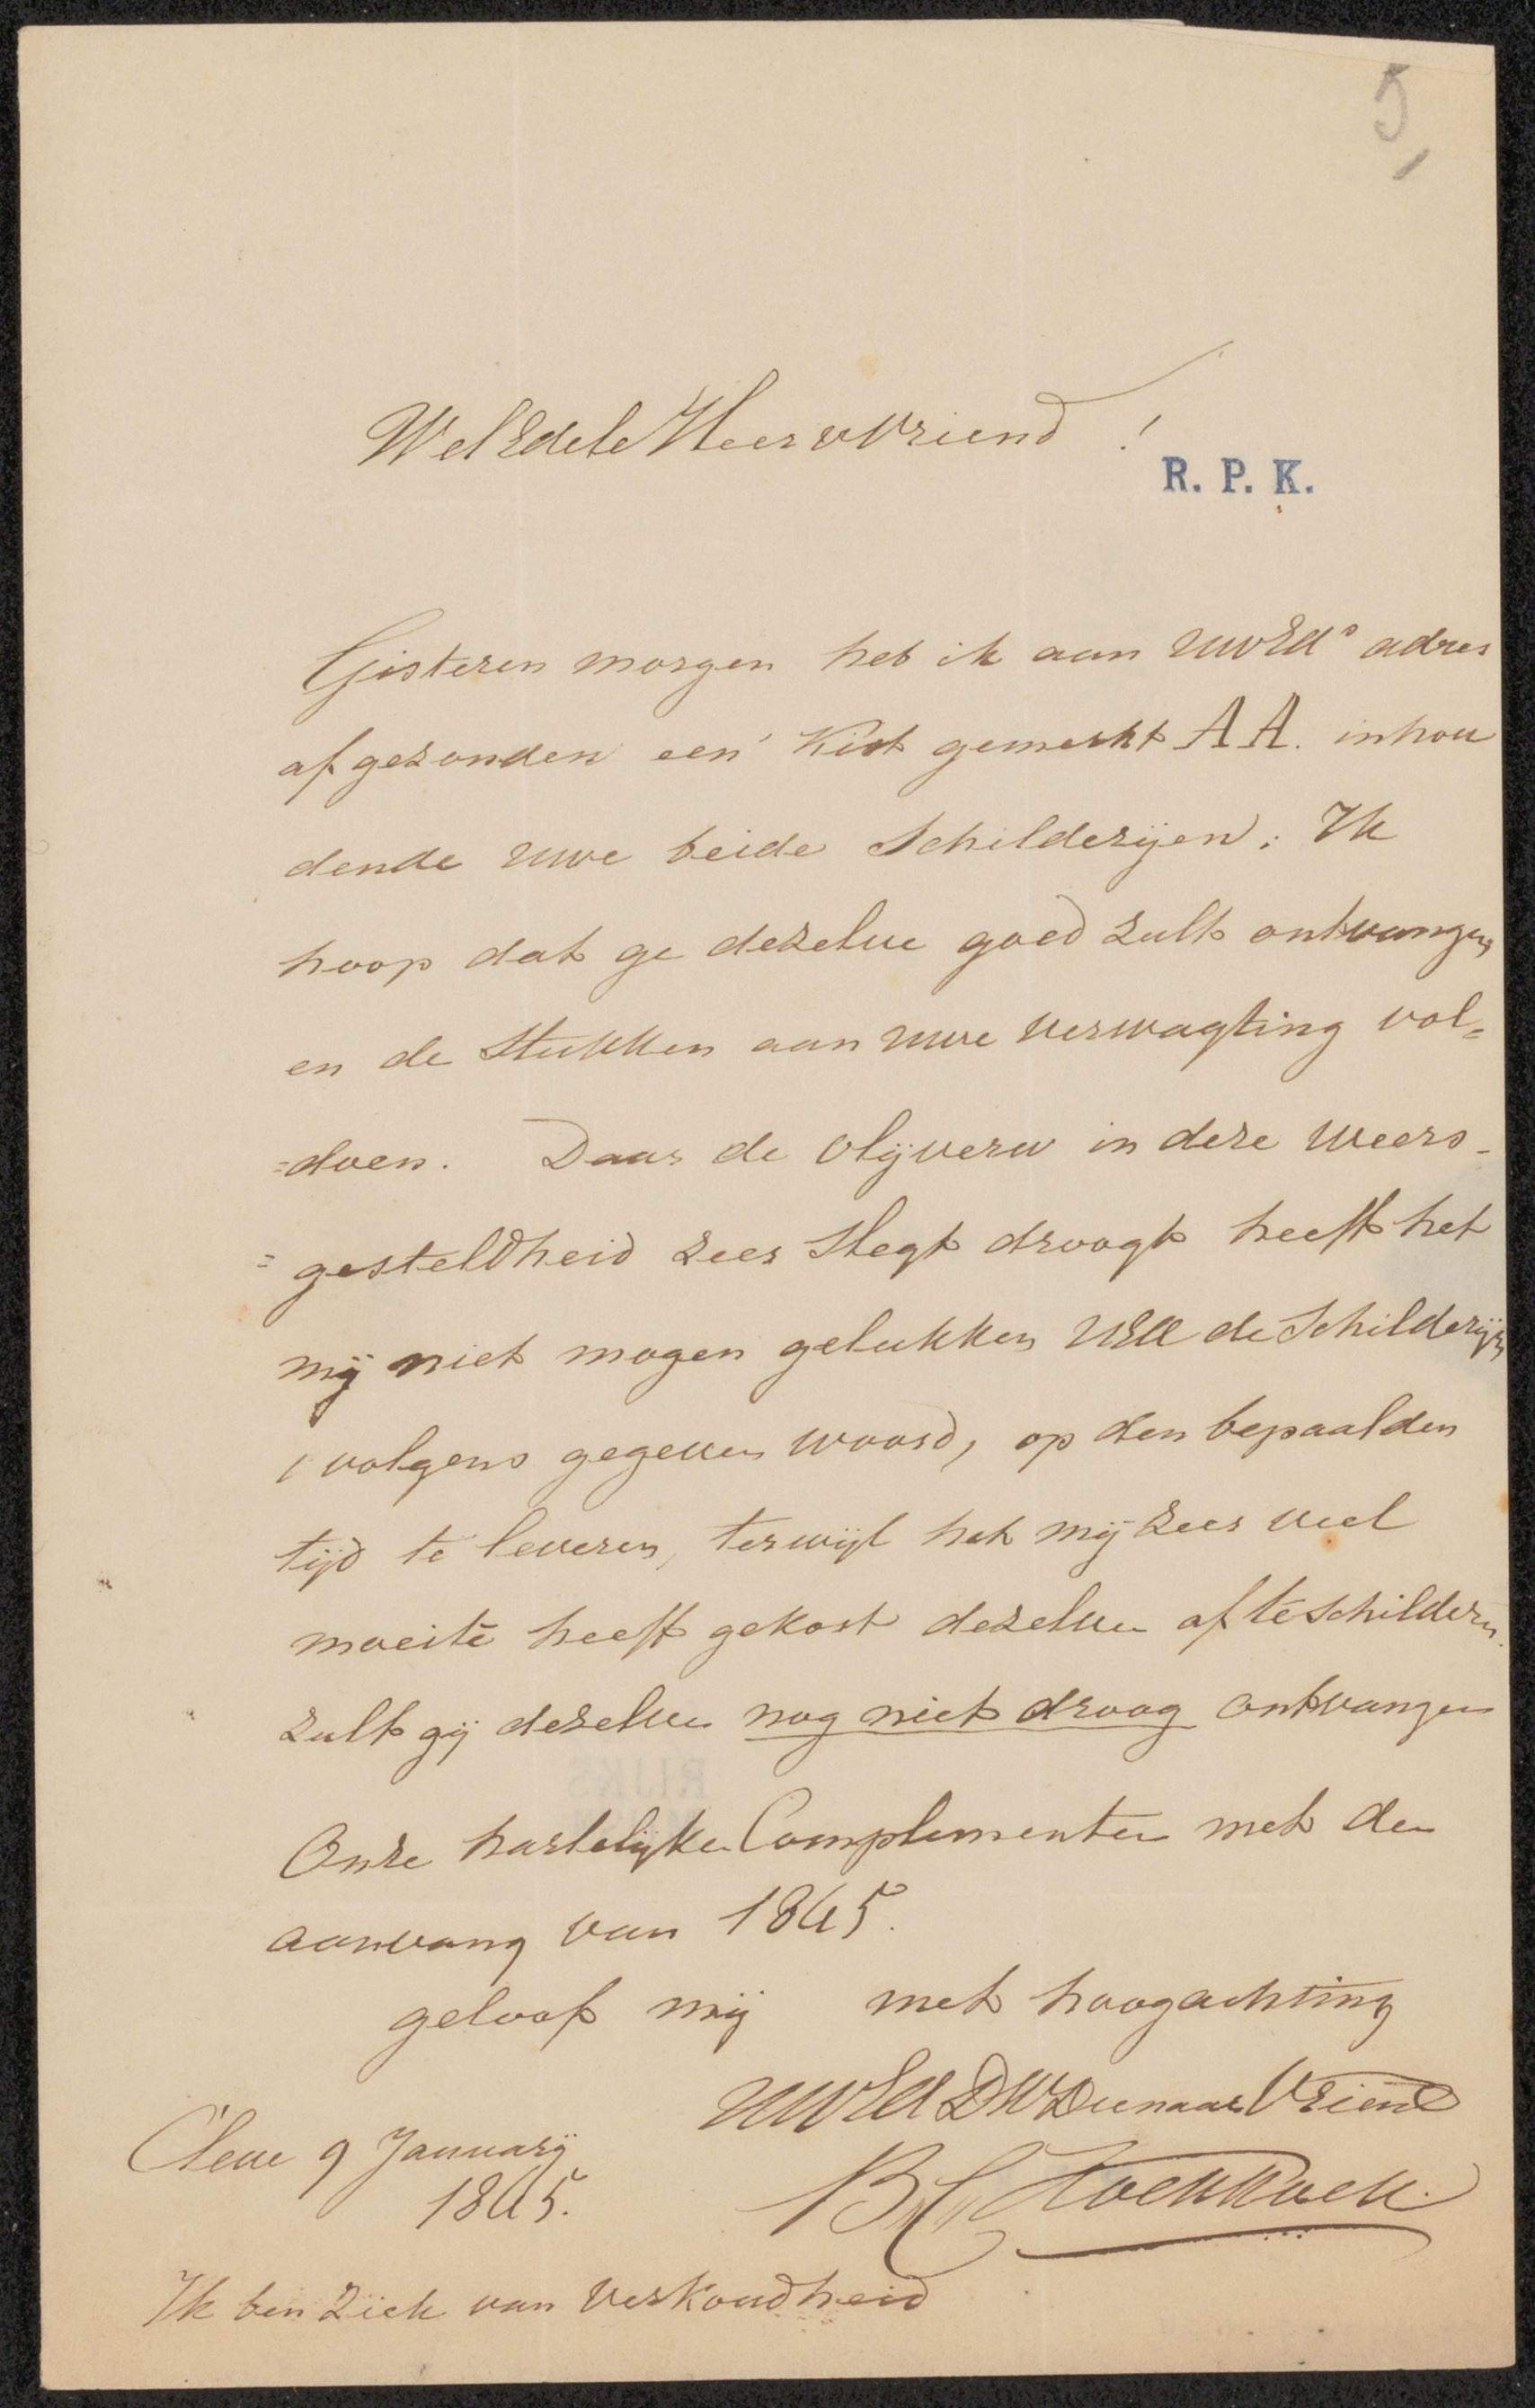 5,
WelEdele Heer v Vriend !
R. P. K.
Gisteren morgen heb ik aan UwEds adres
afgezonden een' Kist gemerkt AA. inhou
dende uwe beide Schilderijen; Ik
hoop dat ge dezelve goed zult ontvangen
en de Stukken aan uwe verwagting vol=
=doen. Daar de olijverw in deze weers-
=gesteldheid zeer Slegt droogt heeft het
mij niet mogen gelukken UEd de Schilderijn
, volgens gegeven woord, op den bepaalden
tijd te leveren, terwijl het mij zeer veel
moeite heeft gekost dezelven af te schildern.
zult gij dezelven nog niet droog ontvangen
Onze hartelijke Complementen met den
aanvang van 1845.
geloof mij met hoogachting
UWEd DWDienaar Vriend
Cleve 9 Januarij
1845.
B.C. Koekkoek.
Ik ben ziek van verkoudheid
RIJKS